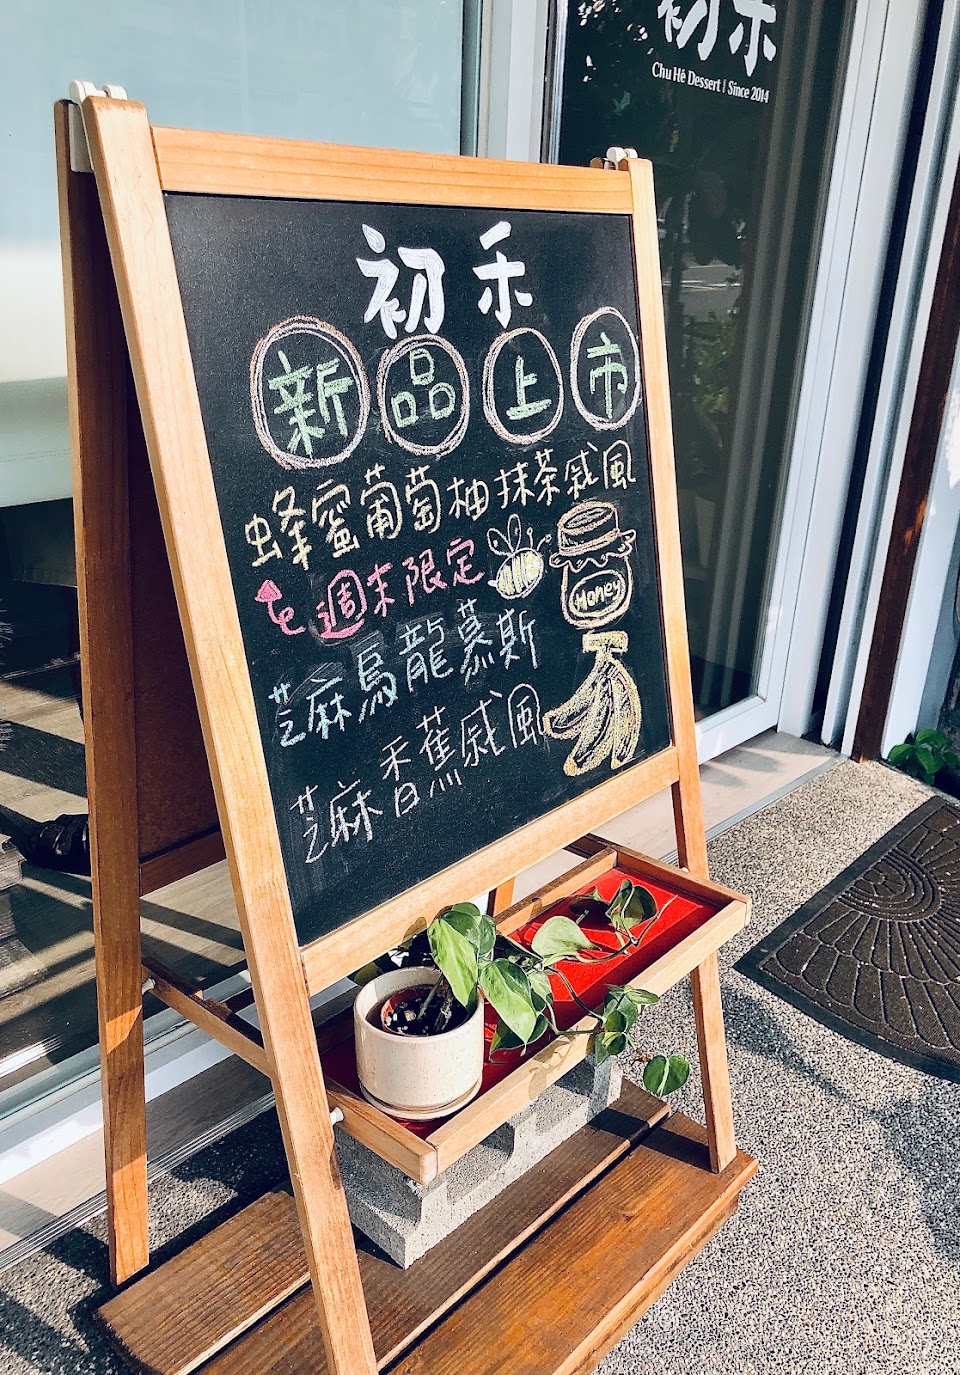 初禾
Chu Hê Dessert | Since 2014
初禾
新品上市
蜂蜜葡萄柚抹茶戚風
週末限定
Honey
芝麻烏龍慕斯
芝麻香蕉戚風